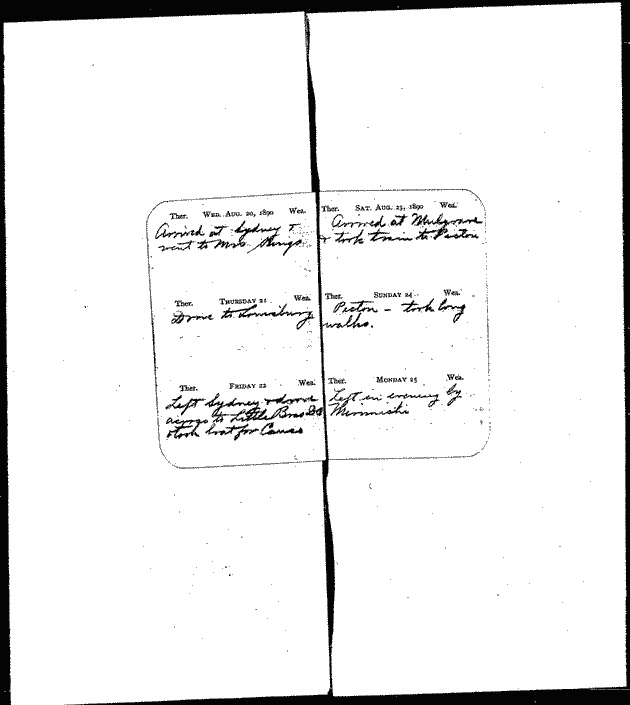 Ther. WED. AUG. 20, 1890 Wea.
Arrived at Sydney &
went to Mrs. Kings
Ther. THURSDAY 21 Wea.
Drove to Louisburg
Ther. FRIDAY 22 Wea.
Left Sydney & drove
across to Little Bras Dor
& took boat for Canso
Ther. SAT. AUG. 23, 1890 Wea.
Arrived at Mulgrave
& took train to Pictou
Ther. SUNDAY 24 Wea.
Pictou - took long
walks.
Ther. MONDAY 25 Wea.
Left in evening by
Mirimichi